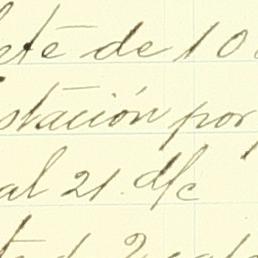 ete de 10
stación por
al 21. d/c